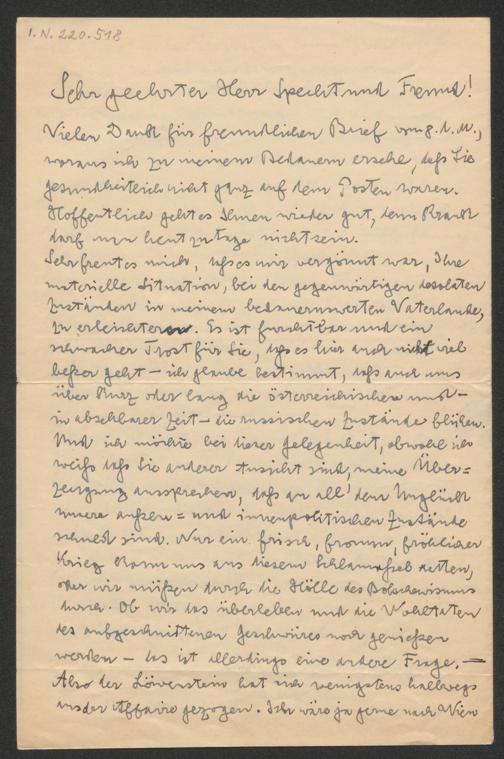 I. N. 220.518
Sehr geehrter Herr Specht und Freund!
Vielen Dank für freundlichen Brief vom 8. d. M.,
woraus ich zu meinem Bedauern ersehe, daß Sie
gesundheitlich nicht ganz auf dem Posten waren.
Hoffentlich geht es Ihnen wieder gut, denn krank
darf man heutzutage nicht sein.
Sehr freut es mich, daß es mir vergönnt war, Ihre
materielle Situation, bei den gegenwärtigen desolaten
Zuständen in meinem bedauernswerten Vaterlande,
zu erleichtern. Es ist furchtbar und ein
schwacher Trost für Sie, daß es hier auch nicht viel
beßer geht – ich glaube bestimmt, daß auch uns
über kurz oder lang die österreichischen und –
in absehbarer Zeit – die russischen Zustände blühen.
Und ich möchte bei dieser Gelegenheit, obwohl ich
weiß daß Sie anderer Ansicht sind, meine Über=
zeugung aussprechen, daß an all' dem Unglück
unsere außen= und innenpolitischen Zustände
schuld sind. Nur ein frisch, fromm, fröhlicher
Krieg kann uns aus diesem Schlamassel retten,
oder wir müßen durch die Hölle des Bolschewismus
durch. Ob wir das überleben und die Wohltaten
des aufgeschnittenen Geschwüres noch genießen
werden – das ist allerdings eine andere Frage. –
Also der Löwenstein hat sich wenigstens halbwegs
aus der Affaire gezogen. Ich wäre ja gerne nach Wien